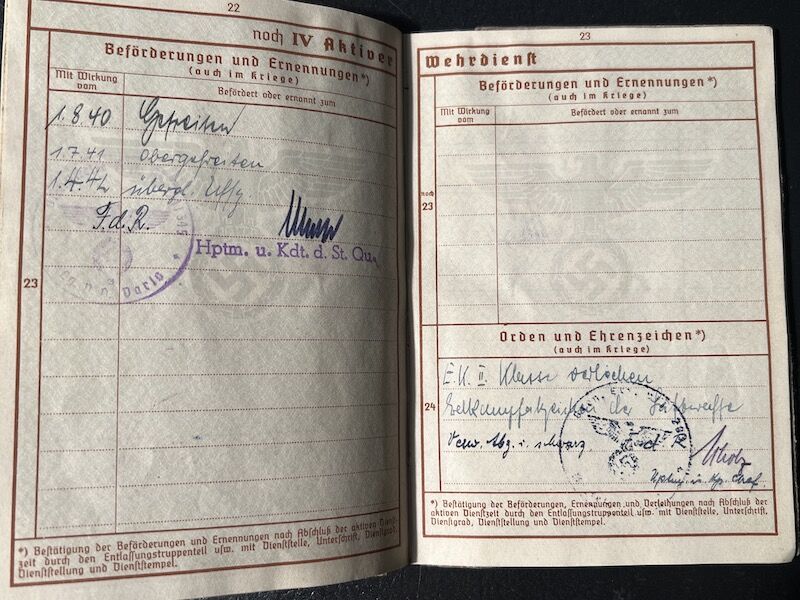 22
noch IV Aktiver
Beförderungen und Ernennungen*)
(auch im Kriege)
Mit Wirkung vom
Befördert oder ernannt zum
1.8 40 Gefreiten
1.7.41 Obergefreiten
1.4.42 übergl. Uffz
F.d.R.
Hptm. u. Kdt. d. St. Qu.
Paris
23
*) Bestätigung der Beförderungen und Ernennungen nach Abschluß der aktiven Dienst-
zeit durch den Entlassungstruppenteil usw. mit Dienststelle, Unterschrift, Dienstgrad,
Dienststellung und Dienststempel.
23
Wehrdienst
Beförderungen und Ernennungen*)
(auch im Kriege)
Mit Wirkung vom
Befördert oder ernannt zum
noch
23
Orden und Ehrenzeichen*)
(auch im Kriege)
E.K. II. Klasse verliehen
24
Verw. Abz. i. schwarz
*) Bestätigung der Beförderungen, Ernennungen und Verleihungen nach Abschluß der
aktiven Dienstzeit durch den Entlassungstruppenteil usw. mit Dienststelle, Unterschrift,
Dienstgrad, Dienststellung und Dienststempel.